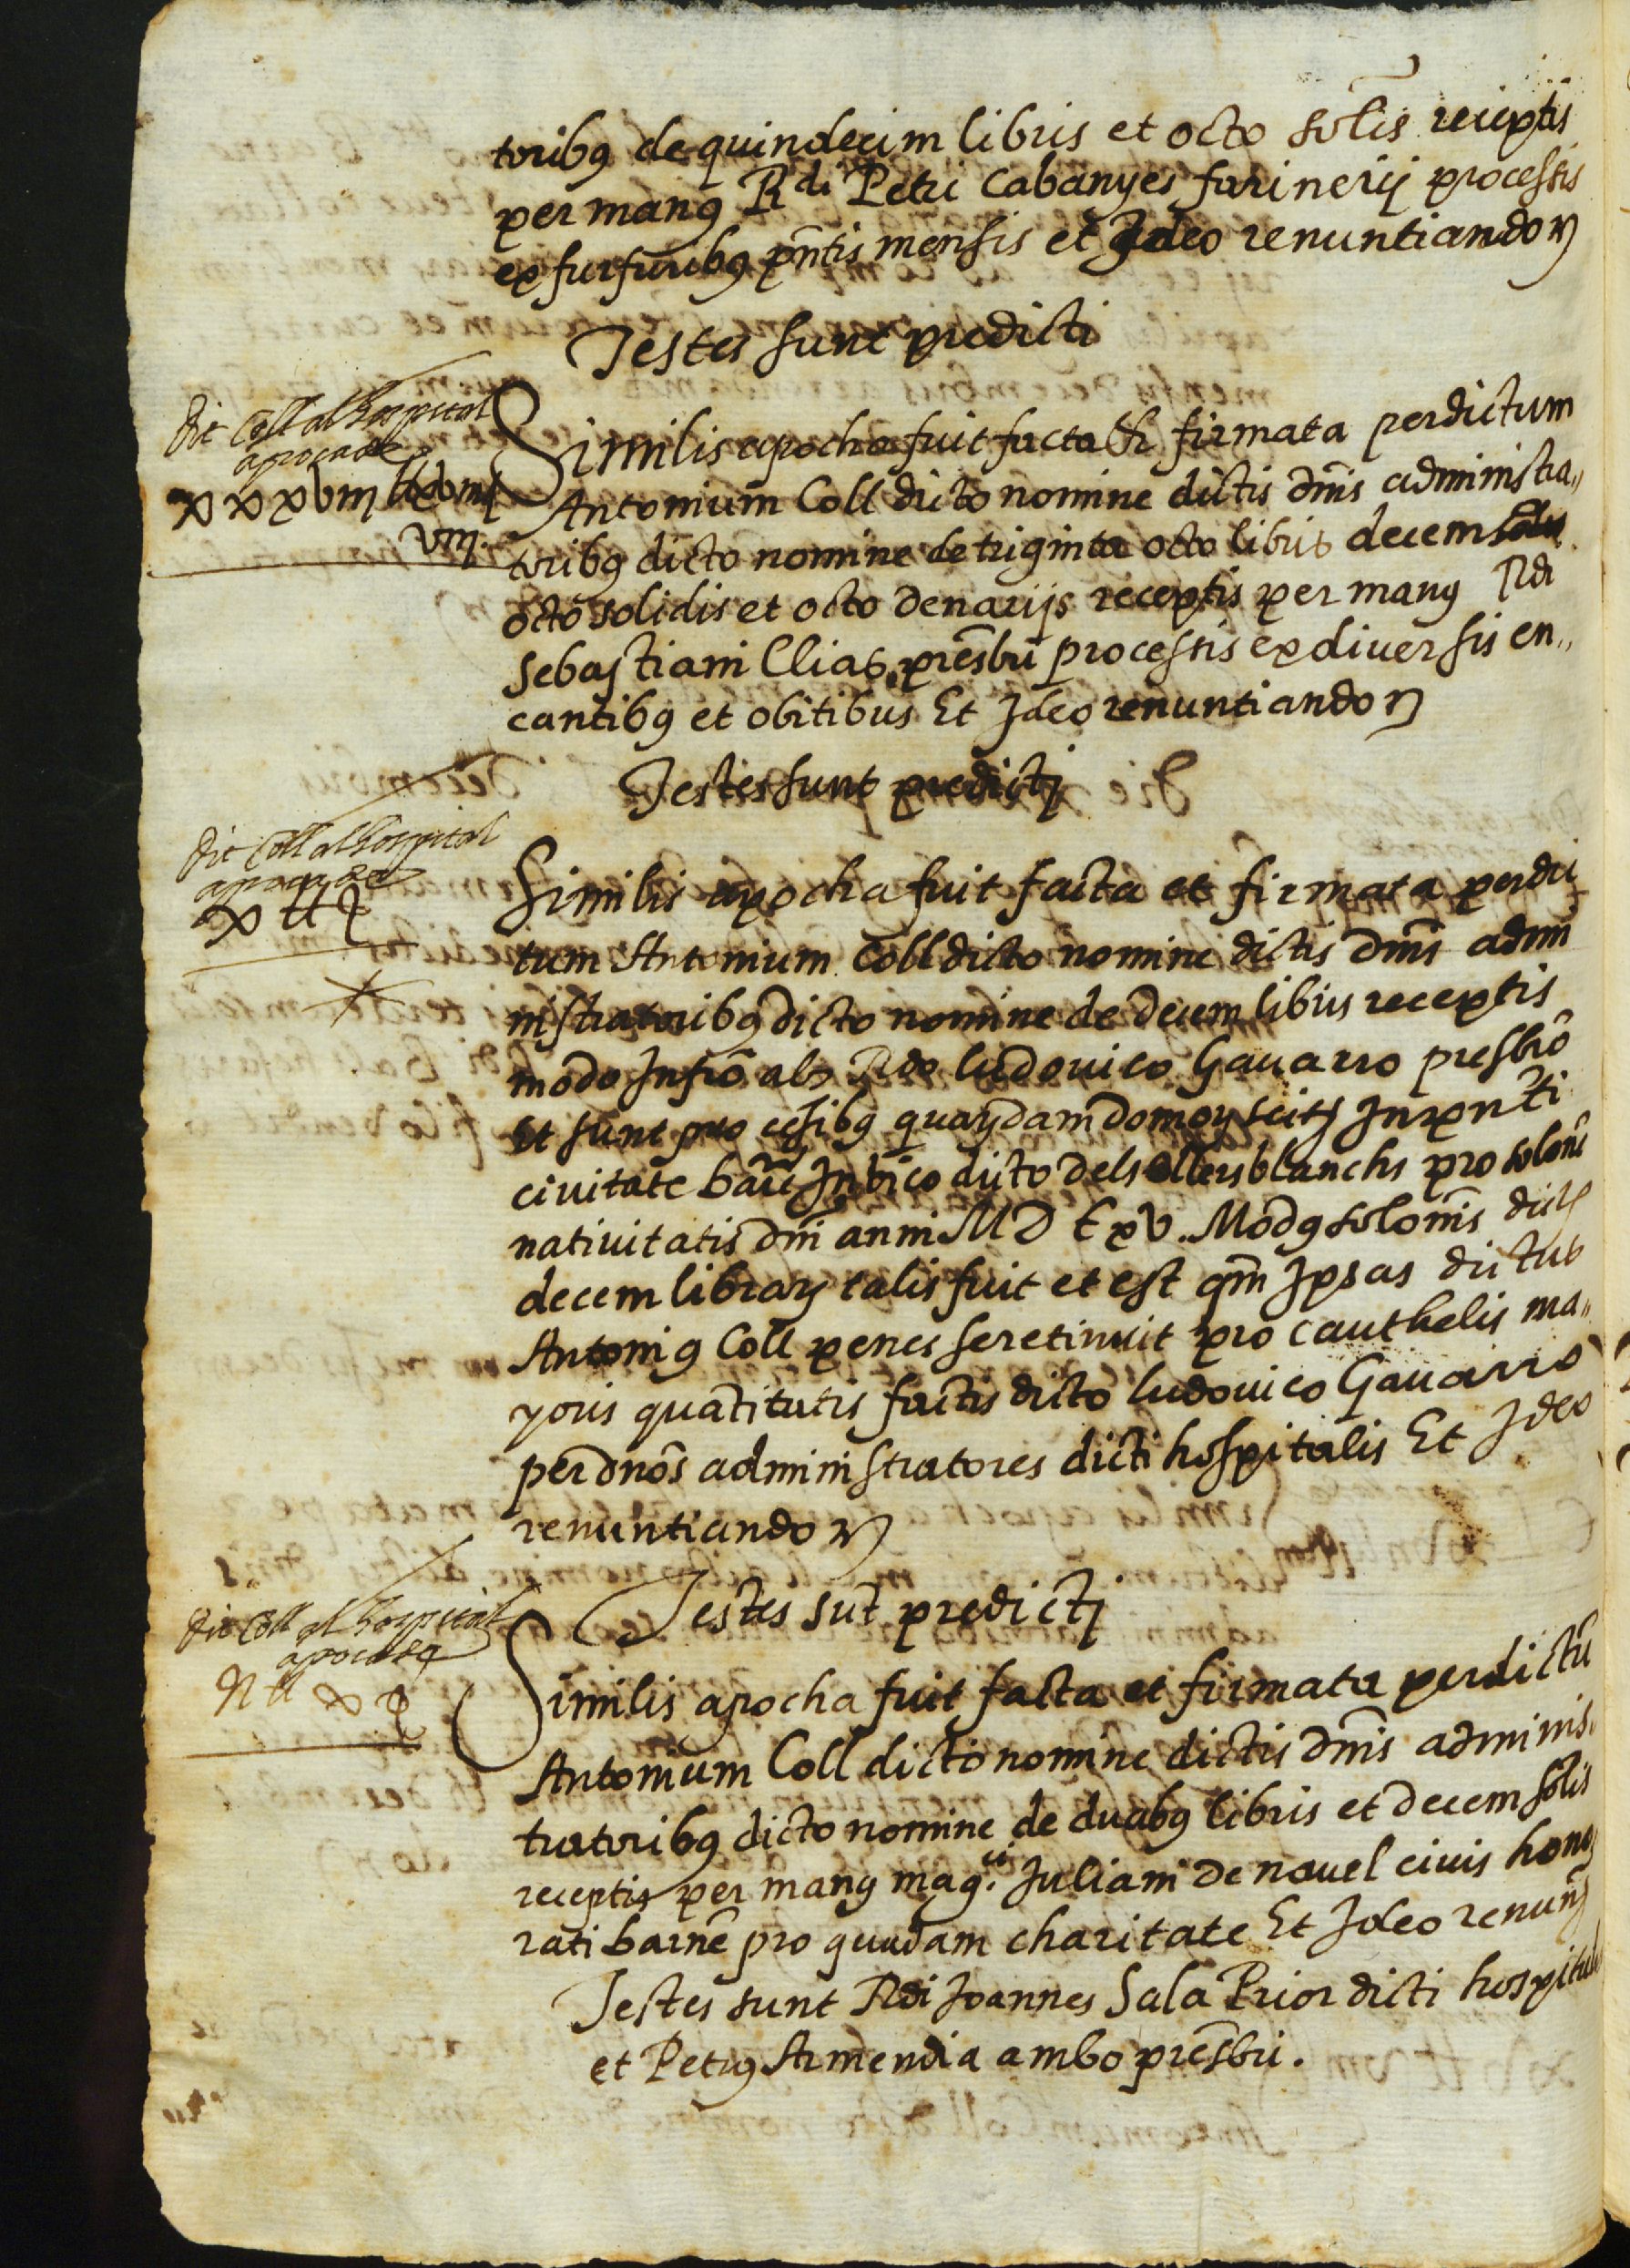 toribꝰ de quindecim libris et octo soł̃is receptis
per manꝰ R.di Petri Cabanyes farinerij processis
ex furfuribꝰ pñtis mensis et Ideo renuntiando ꝛ
Testes sunt predicti
dit Coll al hospital
apoca de
xxxviij ll xviij
viij.
Similis apocha fuit facta & firmata per dictum
Antonium Coll dicto nomine dictis dn̄is administra„
toribꝰ dicto nomine de triginta octo libris decem
octo solidis et octo denarijs receptis per manꝰ Rdi
Sebastiani Clias presb̃ri processis ex diversis en„
cantibꝰ et obitibus Et Ideo renuntiando ꝛ
Testes sunt predictj
dit Coll al hospital
apoca de
x ll
Similis apocha fuit facta et firmata per dic
tum Antonium Coll dicto nomine dictis dn̄is admi
nistratoribꝰ dicto nomine de decem libris receptis
modo infrõ ab Rdo Ludovico Gavarro presbr̃o
Et sunt pro cẽsibꝰ quaꝝdam domoꝝ scitis In pñti
civitate barc̃ In vico dicto dels ollers blanchs pro soloñi
nativitatis dn̄i anni MDCxv. Modꝰ soloñis dictaꝝ
decem libraꝝ talis fuit et est qm̃ Ipsas dictus
Antoniꝰ Coll penes se retinuit pro cauthelis ma„
yoris quãtitatis factis dicto ludovico Gavarro
per dnõs administratores dicti hospitalis Et Ideo
renuntiando ꝛ
Testes sut̃ predictj
dit Coll al hospital
apoca de
ii ll x
Similis apocha fuit facta et firmata per dictũ
Antonium Coll dicto nomine dictis dn̄is adminis„
tratoribꝰ dicto nomine de duabꝰ libris et decem soł̃is
receptis per manꝰ mag.ci Juliani de navel civis hono
rati barnẽ pro quadam charitate Et Ideo renun̄
Testes sunt Rdi Joannes Sala Prior dicti hospital
et Petrꝰ Armendia ambo presb̃ri.